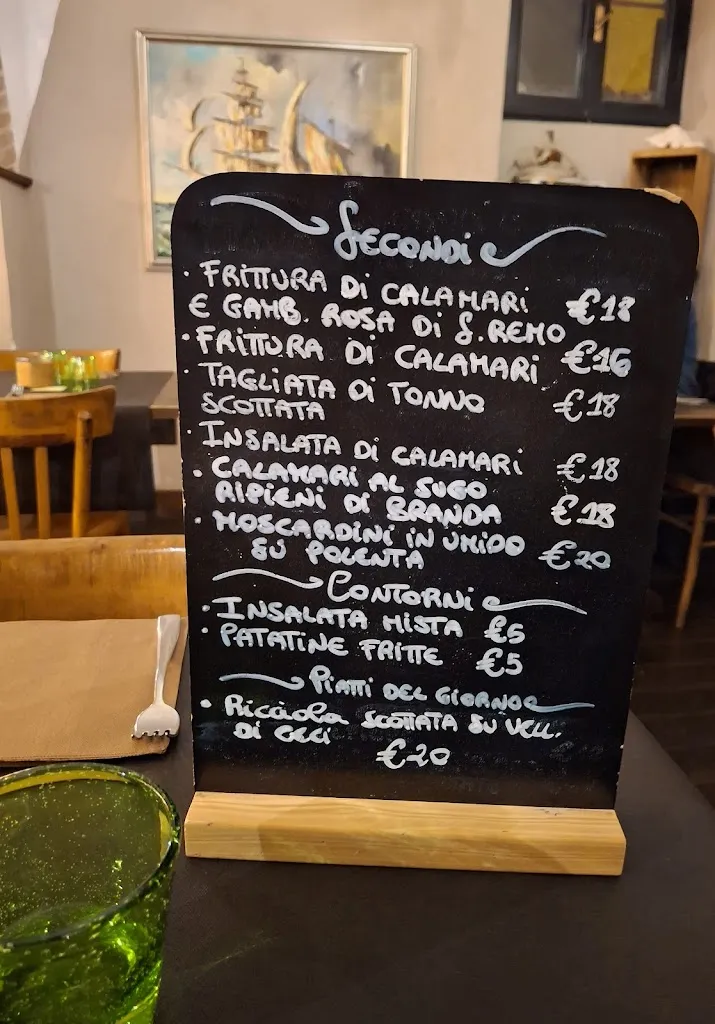 Secondi
· FRITTURA Di CALAMARi
E GAMB. ROSA Di S.REMO €18
· FRITTURA Di CALAMARi €16
· TAGLIATA Di TONNO
SCOTTATA €18
· INSALATA Di CALAMARi €18
· CALAMARi AL SUGO
RIPIENi Di BRANDA €18
· MOSCARDiNi iN UMiDO
SU POLENTA €20
CONTORNi
· INSALATA MiSTA €5
· PATATiNE FRITTE €5
PiATTi DEL GiORNO
· Ricciola SCOTTATA SU VELL.
Di CECi
€20